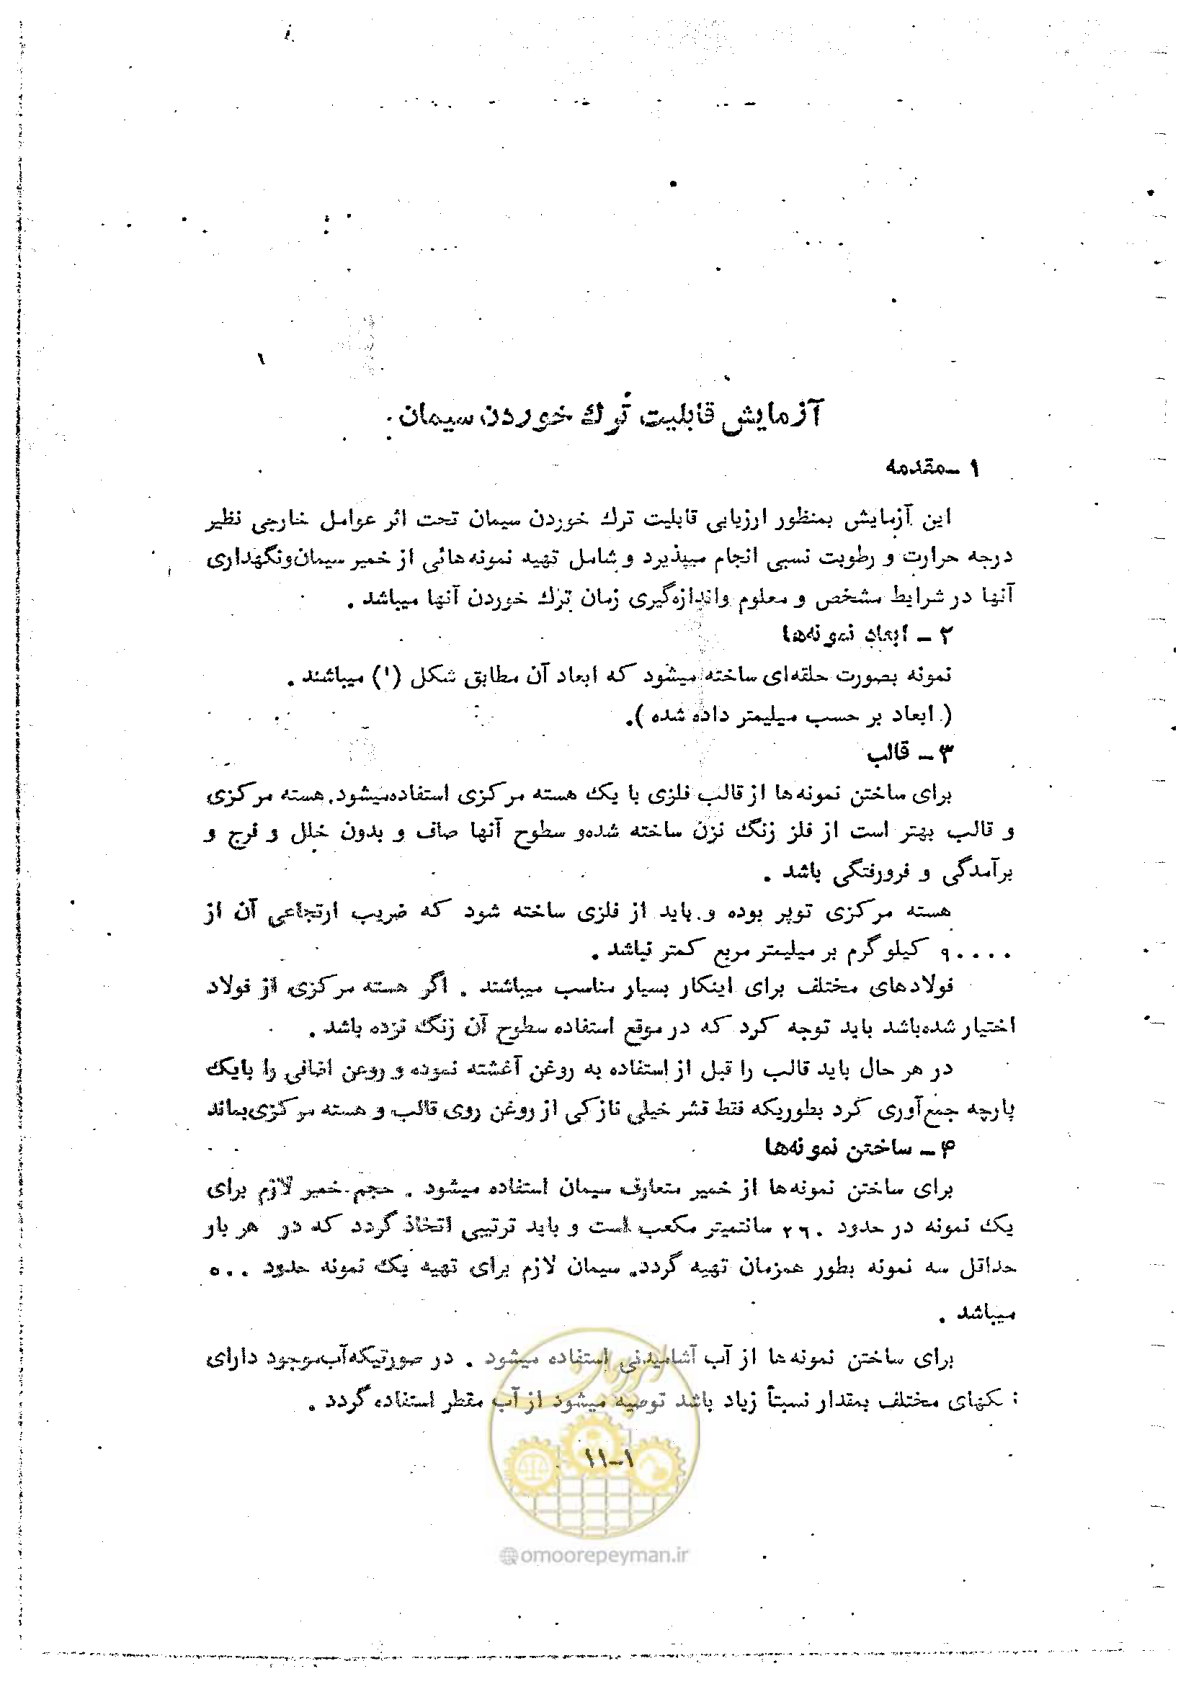 ۱
آزمایش قابلیت تُرك خوردن سیمان
۱ ـ مقدمه
این آزمایش بمنظور ارزیابی قابلیت ترك خوردن سیمان تحت اثر عوامل خارجی نظیر
درجه حرارت و رطوبت نسبی انجام میپذیرد و شامل تهیه نمونه‌هائی از خمیر سیمان‌ونگهداری
آنها در شرایط مشخص و معلوم واندازه‌گیری زمان ترك خوردن آنها میباشد .
۲ ـ ابعاد نمونه‌ها
نمونه بصورت حلقه‌ای ساخته میشود که ابعاد آن مطابق شکل (۱) میباشند .
( ابعاد بر حسب میلیمتر داده شده ).
۳ ـ قالب
برای ساختن نمونه‌ها از قالب فلزی با یك هسته مرکزی استفاده‌میشود. هسته مرکزی
و قالب بهتر است از فلز زنگ نزن ساخته شده‌و سطوح آنها صاف و بدون خلل و فرج و
برآمدگی و فرورفتگی باشد .
هسته مرکزی توپر بوده و باید از فلزی ساخته شود که ضریب ارتجاعی آن از
۹۰۰۰۰ کیلوگرم بر میلیمتر مربع کمتر نباشد .
فولادهای مختلف برای اینکار بسیار مناسب میباشند . اگر هسته مرکزی از فولاد
اختیار شده‌باشد باید توجه کرد که در موقع استفاده سطوح آن زنگ نزده باشد .
در هر حال باید قالب را قبل از استفاده به روغن آغشته نموده و روغن اضافی را بایك
پارچه جمع‌آوری کرد بطوریکه فقط قشر خیلی نازکی از روغن روی قالب و هسته مرکزی‌بماند
۴ ـ ساختن نمونه‌ها
برای ساختن نمونه‌ها از خمیر متعارف سیمان استفاده میشود . حجم خمیر لازم برای
یك نمونه در حدود ۲۶۰ سانتمیتر مکعب است و باید ترتیبی اتخاذ گردد که در هر بار
حداقل سه نمونه بطور همزمان تهیه گردد. سیمان لازم برای تهیه یك نمونه حدود ۵۰۰
میباشد .
برای ساختن نمونه‌ها از آب آشامیدنی استفاده میشود . در صورتیکه‌آب‌موجود دارای
نمکهای مختلف بمقدار نسبتاً زیاد باشد توصیه میشود از آب مقطر استفاده گردد .
۱۱-۱
@omoorepeyman.ir